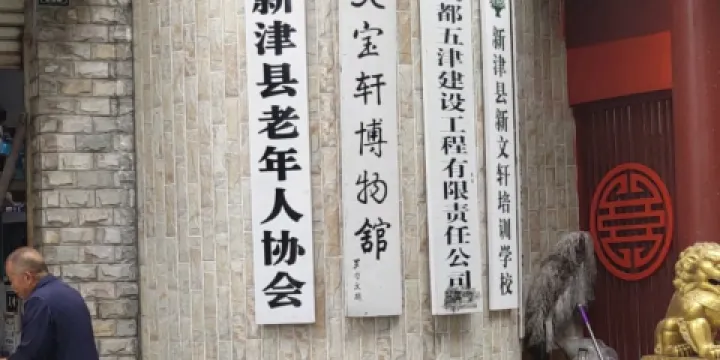 新津县老年人协会
宝轩博物館
都五津建设工程有限责任公司
新津县新文轩培训学校